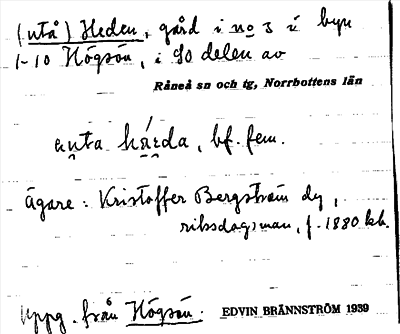 (utå) Heden, gård i no 3 i byn
1-10 Högsön, i SO delen av
Råneå sn och tg, Norrbottens län
a̤nta há̤ṛda, bf. fem.
Ägare: Kristoffer Bergström dy,
riksdagsman, f. 1880 kh.
Uppg. från Högsön. EDVIN BRÄNNSTRÖM 1939